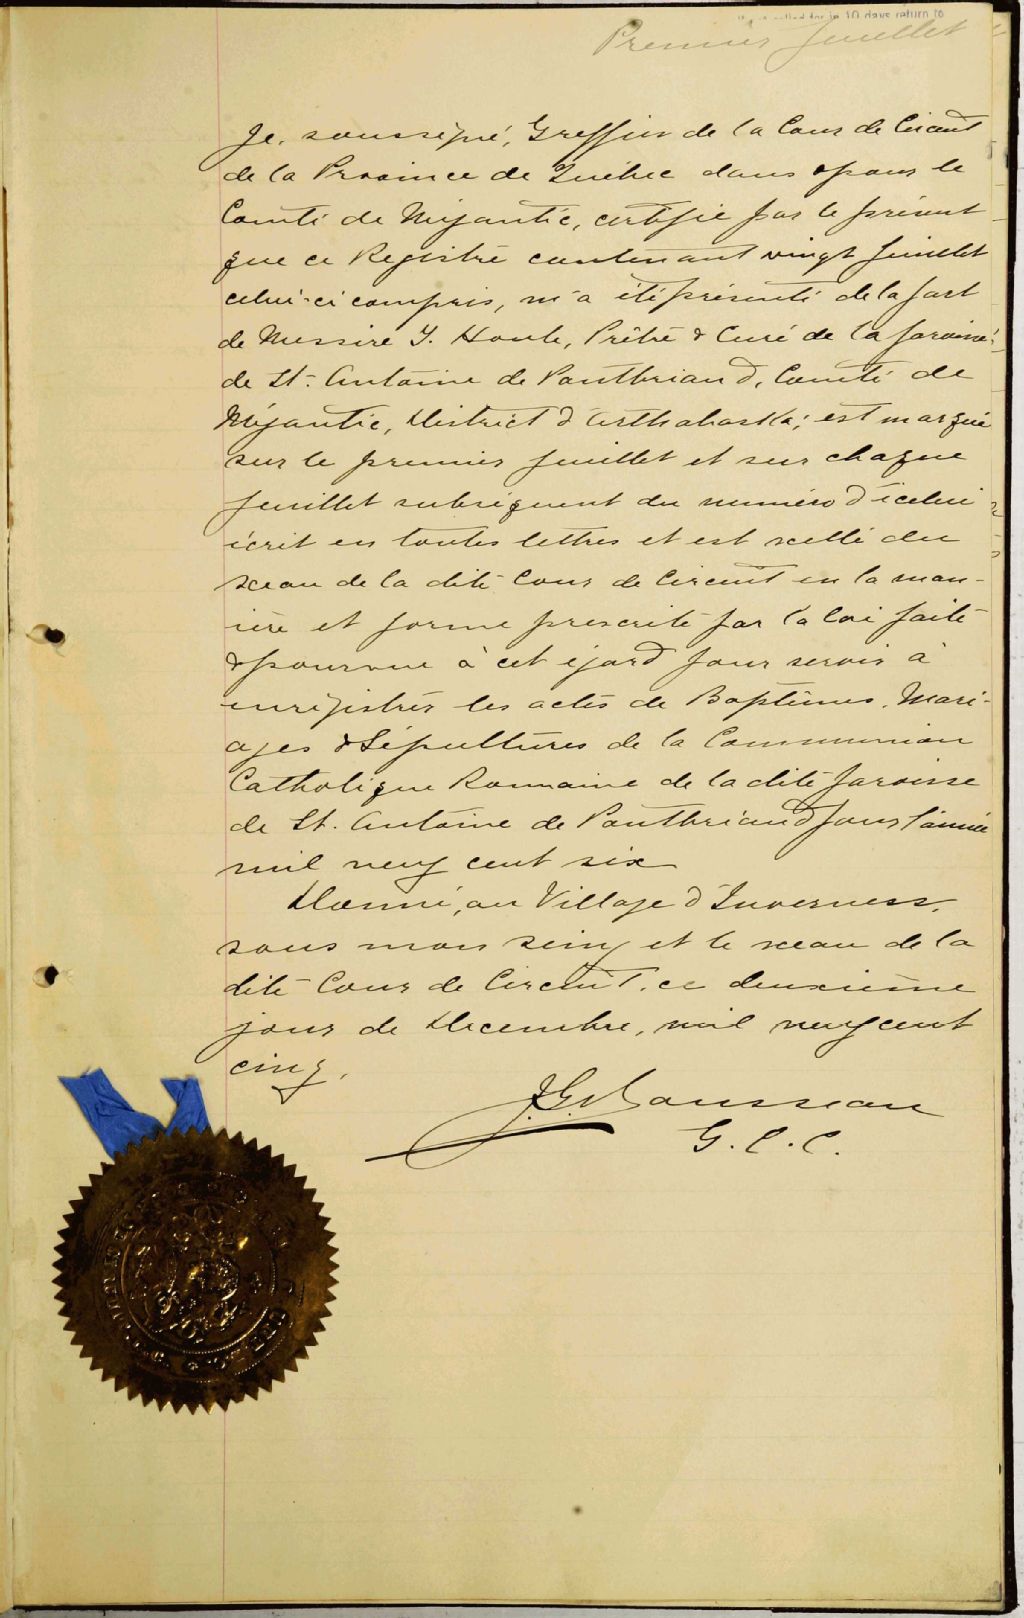 10 days return to
Premier feuillet
Je, soussigné, Greffier de la Cour de Circuit
de la Province de Québec dans & pour le
Comté de Mégantic, certifie par le présent
que ce Registre contenant vingt feuillet
celui-ci compris, m'a été présenté de la part
de Messire J. Houle, Prêtre & Curé de la paroisse
de St. Antoine de Pontbriand, Comté de
Mégantic, District d'Arthabaska; est marqué
sur le premier feuillet et sur chaque
feuillet subséquent du numéro d'icelui
écrit en toutes lettres et est scellé du
sceau de la dite Cour de Circuit en la man-
ière et forme prescrite par la loi faite
& pourvue à cet égard pour servir à
enrégistrer les actes de Baptêmes, Mari-
ages & Sépultures de la Communion
Catholique Romaine de la dite paroisse
de St. Antoine de Pontbriand pour l'année
mil neuf cent six
Donné, au Village d'Inverness,
sous mon seing et le sceau de la
dite Cour de Circuit, ce deuxième
jour de Décembre, mil neuf cent
cinq.
J.G. Rousseau
G. C. C.